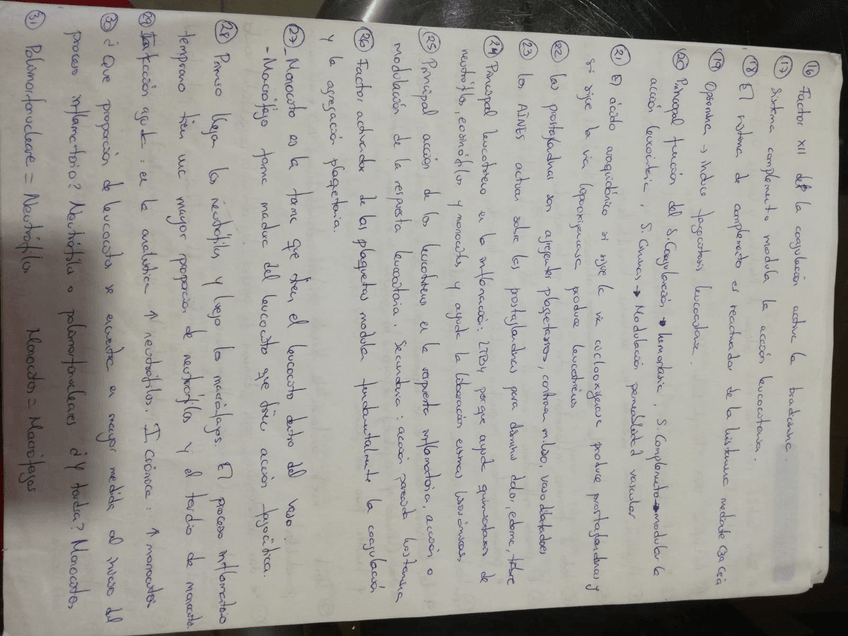 ⑯ Factor XII de la coagulación activa la bradicinina.
⑰ Sistema complemento modula la acción leucocitaria.
⑱ El sistema de complemento es reactivador de la histamina mediante C3a C5a
⑲ Opsonina → induce fagocitosis leucocitaria.
⑳ Principal función del S. Coagulación → hemostasia, S. Complemento → modular la
acción leucocitaria, S. Cininas → Modulación permeabilidad vascular
㉑ El ácido araquidónico si sigue la vía ciclooxigenasa produce prostaglandinas y
si sigue la vía lipooxigenasa produce leucotrienos
㉒ Las prostaglandinas son agregantes plaquetarios, contraen músculo, vasodilatadores
㉓ Los AINES actúan sobre las prostaglandinas para disminuir dolor, edema, fiebre
㉔ Principal leucotrieno en la inflamación: LTB4 porque ayuda quimiotaxis de
neutrófilos, eosinófilos y monocitos, y ayuda la liberación enzimas lisosómicas.
㉕ Principal acción de los leucotrienos es la respuesta inflamatoria, acción o
modulación de la respuesta leucocitaria. Secundaria: acción parecida histamina
㉖ Factor activador de las plaquetas modula fundamentalmente la coagulación
y la agregación plaquetaria.
㉗ - Monocito es la forma que tiene el leucocito dentro del vaso.
- Macrófago forma madura del leucocito que tiene acción fagocítica.
㉘ Primero llega los neutrófilos y luego los macrófagos. El proceso inflamatorio
temprano tiene una mayor proporción de neutrófilos y el tardío de monocitos.
㉙ Infección aguda: en la analítica ↑ neutrófilos. I. Crónica: ↑ monocitos
㉚ ¿Que proporción de leucocitos se encuentra en mayor medida al inicio del
proceso inflamatorio? Neutrófilos o polimorfonucleares ¿Y tardía? Monocitos
㉛ Polimorfonucleares = Neutrófilos Monocitos = Macrófagos